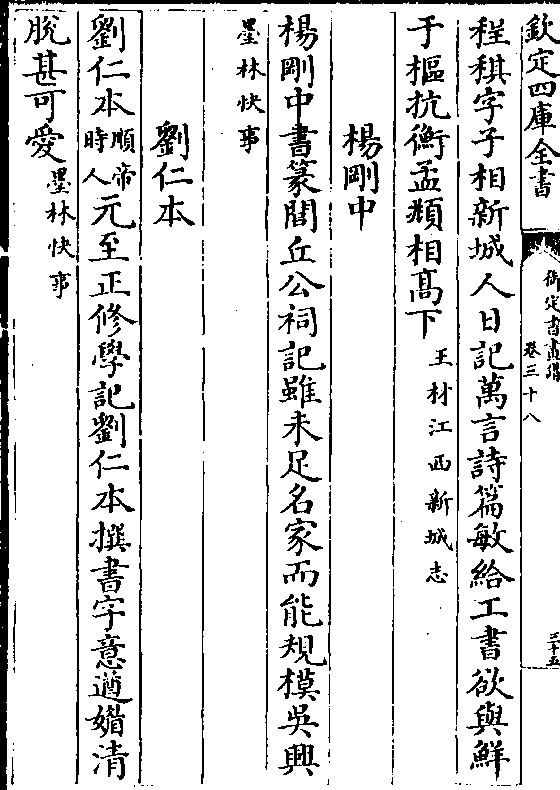 欽定四庫全書
御定書畫譜
卷三十八
三十五
程棋字子相新城人日記萬言詩篇敏給工書欲與鮮
于樞抗衡孟頫相髙下王材江西新城志
楊剛中
楊剛中書篆閭丘公祠記雖未足名家而能規模吳興
墨林快事
劉仁本
劉仁本順帝時人元至正修學記劉仁本撰書字意遒媚清
脫甚可愛墨林快事